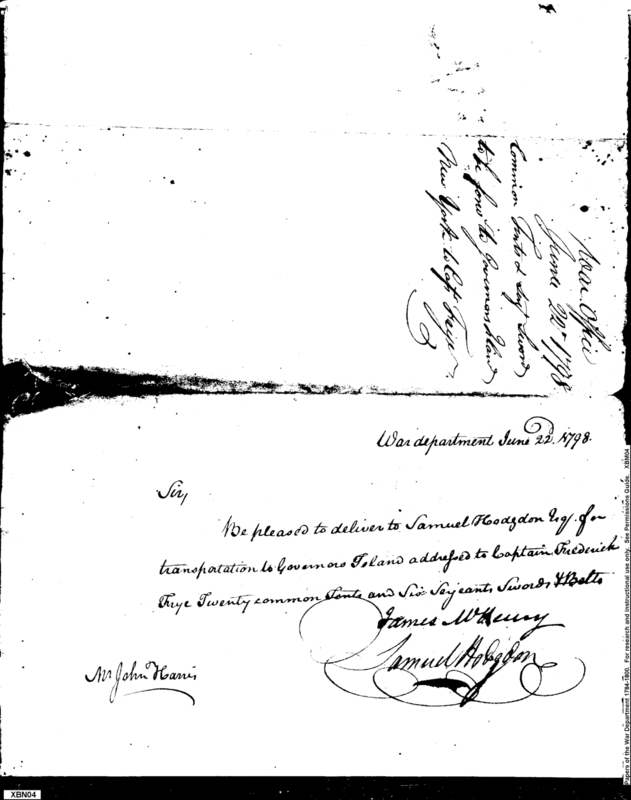 War Office
June 22d 1798
Common Tents & Serj Swords
to be forwd to Governors Island
New York to Capt Frye
War department June 22d. 1798.
Sir,
Be pleased to deliver to Samuel Hodgdon Esqr. for
transportation to Governors Island addressed to Captain Frederick
Frye Twenty common Tents and Six Serjeants Swords & Belts
James McHenry
Samuel Hodgdon
Mr John Harris
Papers of the War Department 1784-1800. For research and instructional use only. See Permissions Guide. XBN04
XBN04